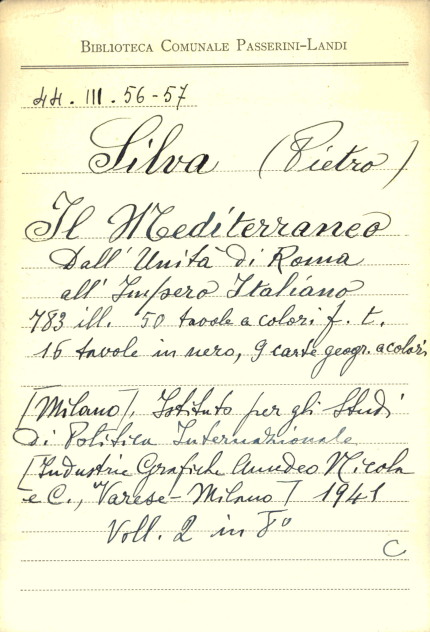 BIBLIOTECA COMUNALE PASSERINI-LANDI
44. III. 56-57
Silva (Pietro)
Il Mediterraneo
Dall'Unità di Roma
all'Impero Italiano
783 ill. 50 tavole a colori f. t.
16 tavole in nero, 9 carte geogr. a colori
[Milano], Istituto per gli Studi
di Politica Internazionale
[Industrie Grafiche Amedeo Nicola
e C., Varese-Milano] 1941
Voll. 2 in 8°
C